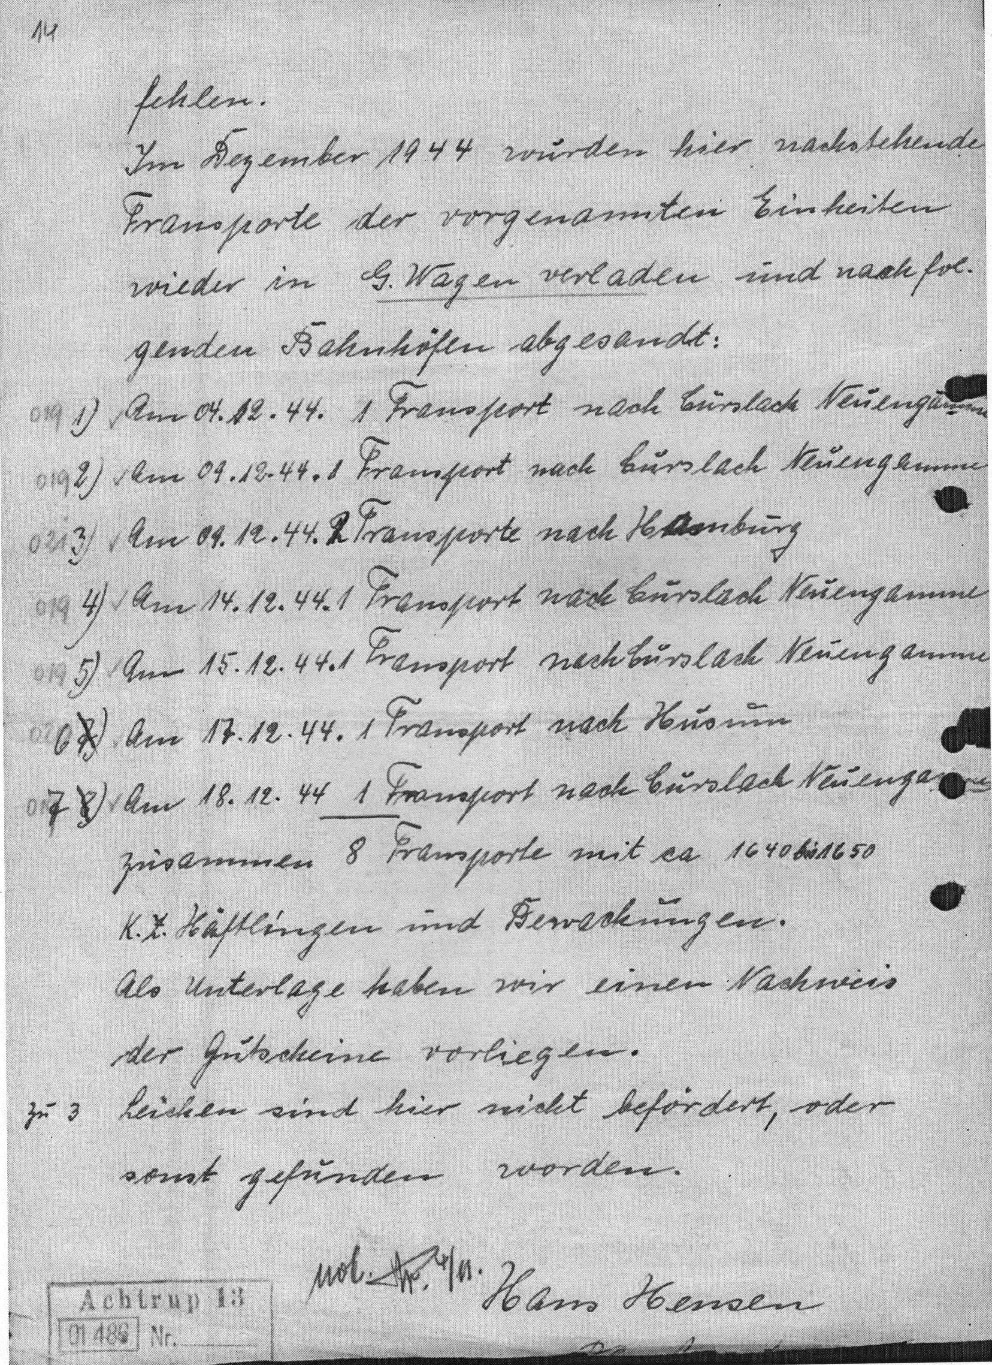 14
fehlen.
Im Dezember 1944 wurden hier nachstehende
Transporte der vorgenannten Einheiten
wieder in G. Wagen verladen und nach fol-
genden Bahnhöfen abgesandt:
019 1) ✓ Am 04.12.44. 1 Transport nach Curslach Neuengamme
019 2) ✓ Am 09.12.44. 1 Transport nach Curslach Neuengamme
021 3) ✓ Am 09.12.44. 2 Transporte nach Hamburg
019 4) ✓ Am 14.12.44. 1 Transport nach Curslach Neuengamme
019 5) ✓ Am 15.12.44. 1 Transport nach Curslach Neuengamme
6) ✓ Am 17.12.44. 1 Transport nach Husum
7 8) ✓ Am 18.12.44 1 Transport nach Curslach Neuengamme
zusammen 8 Transporte mit ca 1640 bis 1650
K.Z. Häftlingen und Bewachungen.
Als Unterlage haben wir einen Nachweis
der Gutscheine vorliegen.
zu 3 Leichen sind hier nicht befördert, oder
sonst gefunden worden.
not.
Hans Hensen
Achtrup 13
01486 Nr.